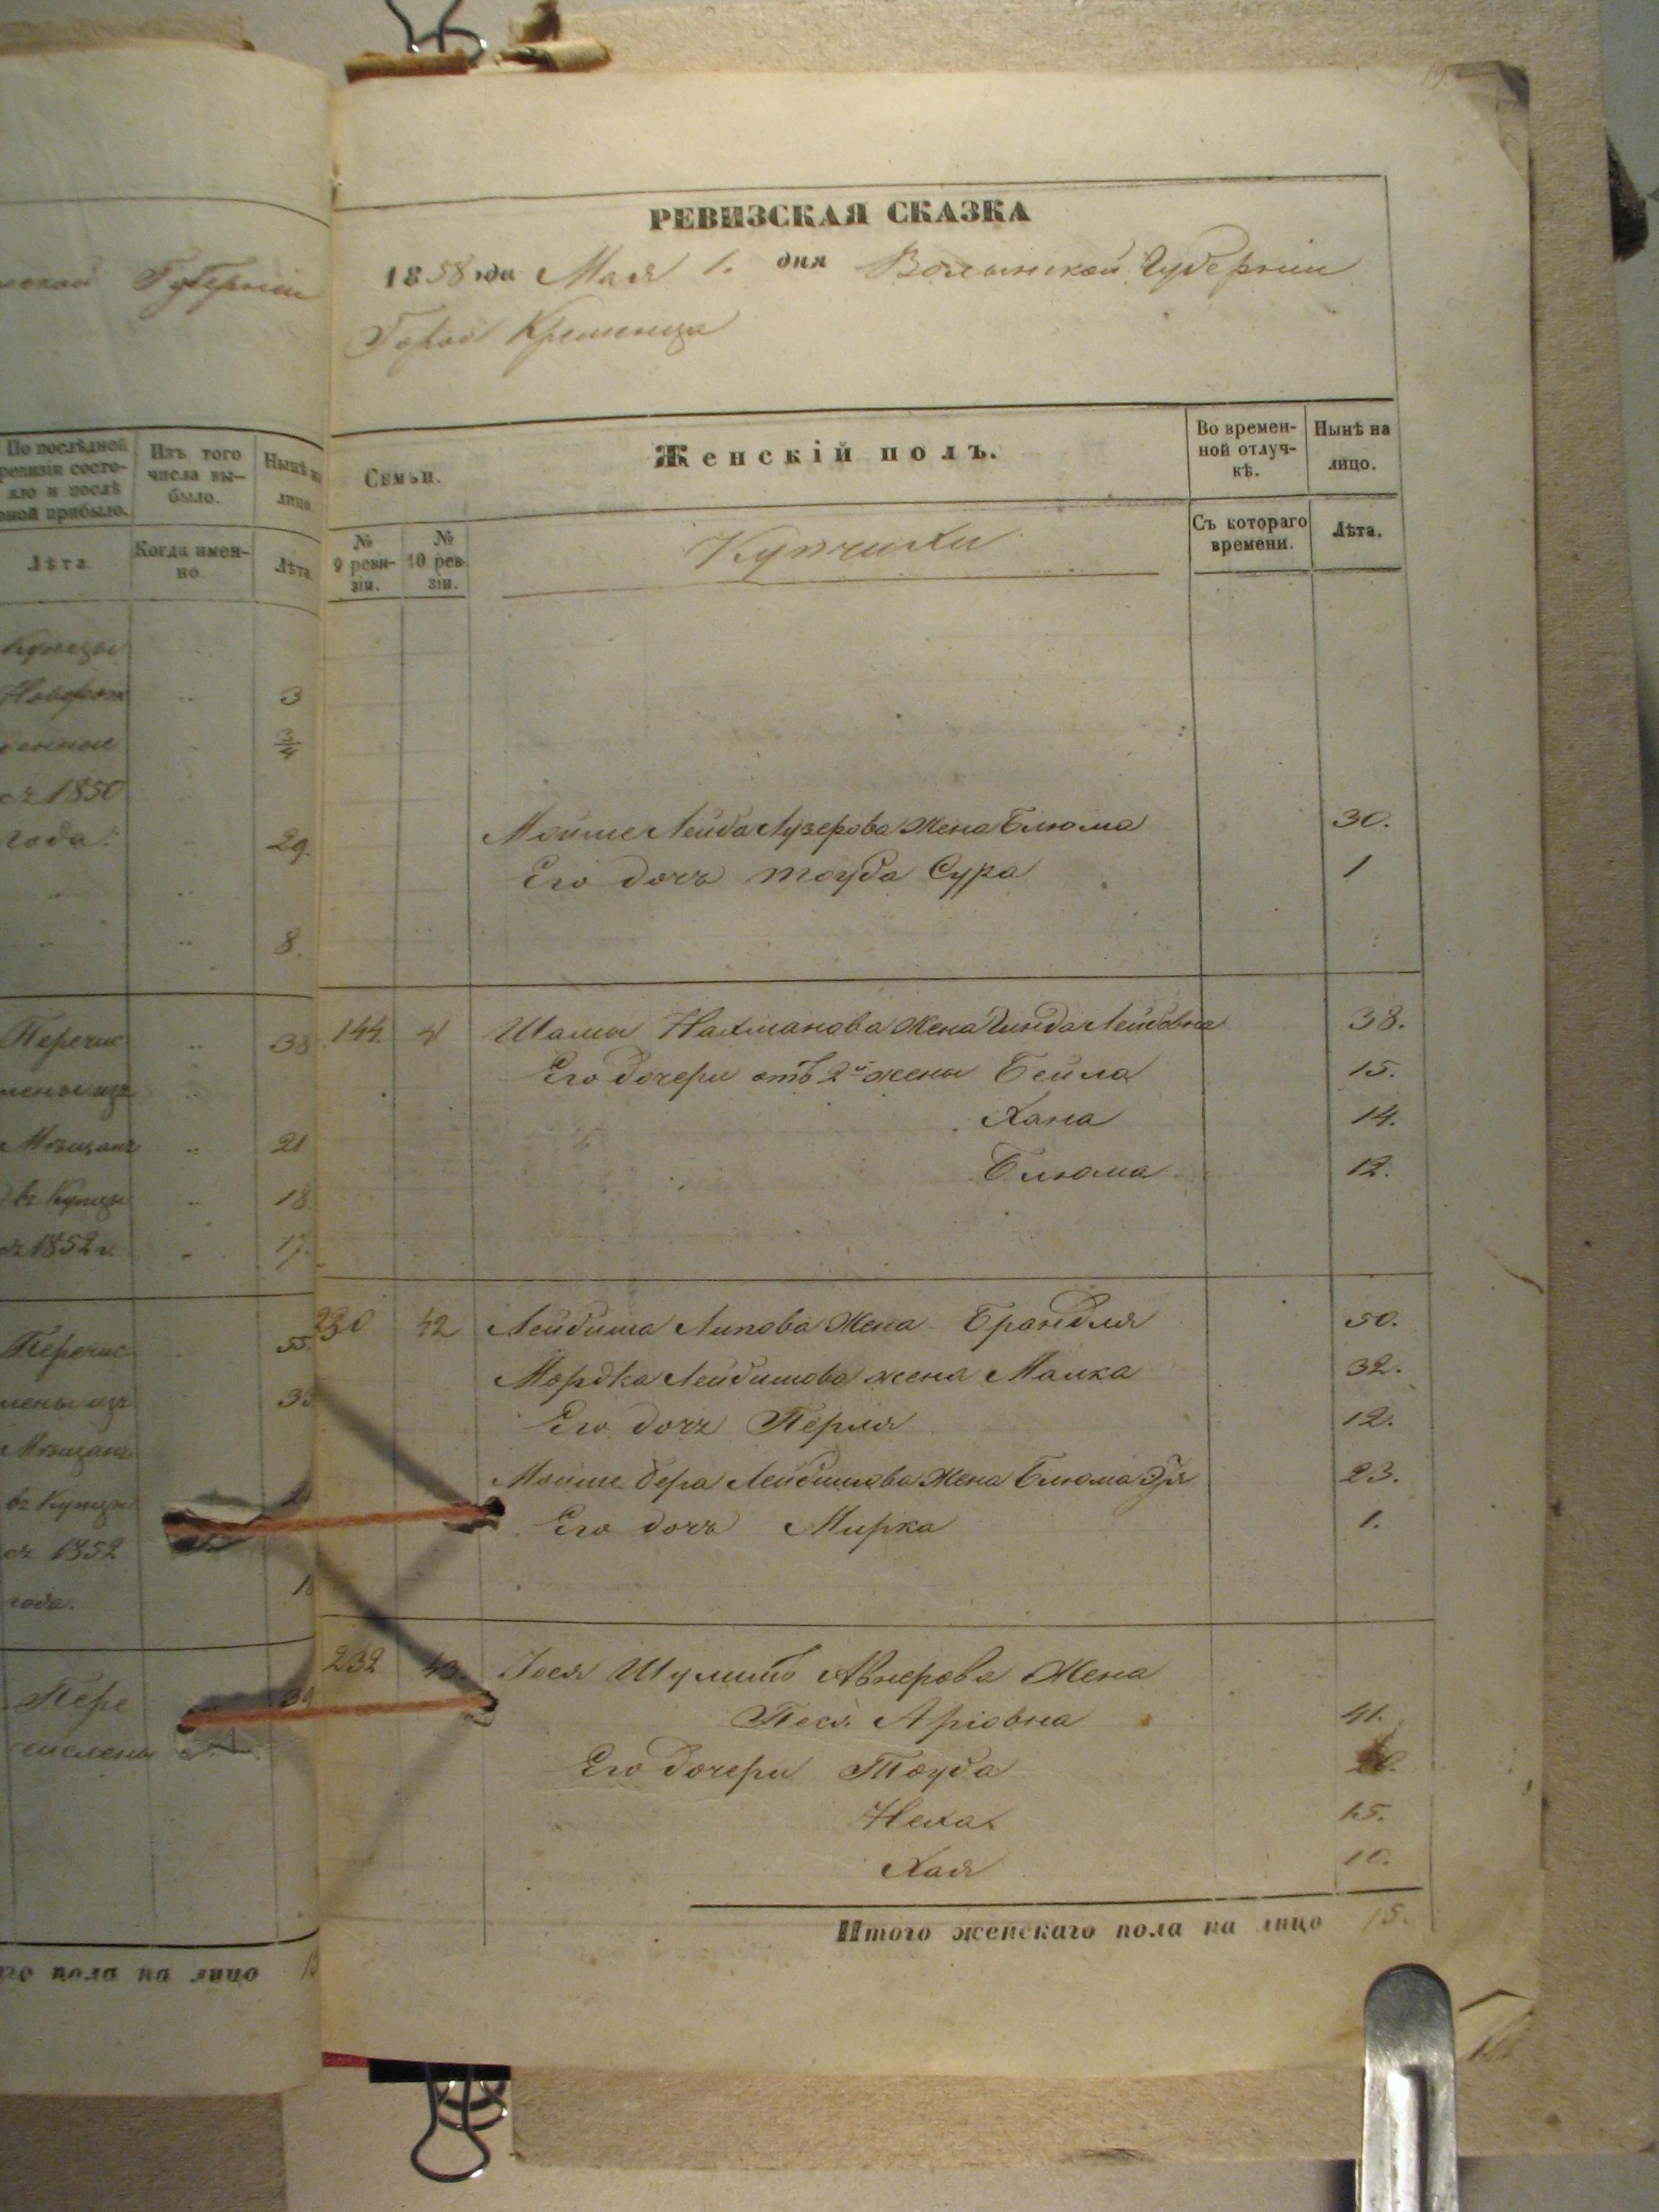 ской Губерніи
По послѣдней ревизіи состояло и послѣ оной прибыло.
Изъ того числа выбыло.
Нынѣ на лицо.
Лѣта.
Когда именно.
Лѣта.
Купцы
3
3/4
съ 1850
года.
29.
8.
Перечис
38
лены изъ
Мѣщанъ
21
въ Купцы
18.
съ 1852 г.
17.
Перечис
55.
лены изъ
Мѣщанъ
въ Купцы
съ 1852
года.
Пере
числены
го пола на лицо
РЕВИЗСКАЯ СКАЗКА
1858 года Мая 1. дня Волынской Губерніи
Город Кременца
Семьи.
Женскій полъ.
Во времен-
ной отлуч-
кѣ.
Нынѣ на
лицо.
№
9 реви-
зіи.
№
10 рев
зіи.
Купчихи
Съ котораго
времени.
Лѣта.
Мойше Лейба Лузерова Жена Блюма 30.
Его дочь Тоуба Сура 1
144. Шамы Нахманова Жена Гинда Лейбовна 38.
Его дочери отъ 2й жены Бейла 15.
Хана 14.
Блюма 12.
230 42 Лейбиша Липова Жена Брандля 50.
Мордка Лейбишова жена Малка 32.
Его дочь Перля 12.
Мойше Бера Лейбишова Жена Блюма 23.
Его дочь Мирка 1.
232 43. Іося Шулимъ Авнерова Жена
Песя Аріовна 41.
Его дочери Тоуба
Неха 15.
Хая 10.
Итого женскаго пола на лицо 15.